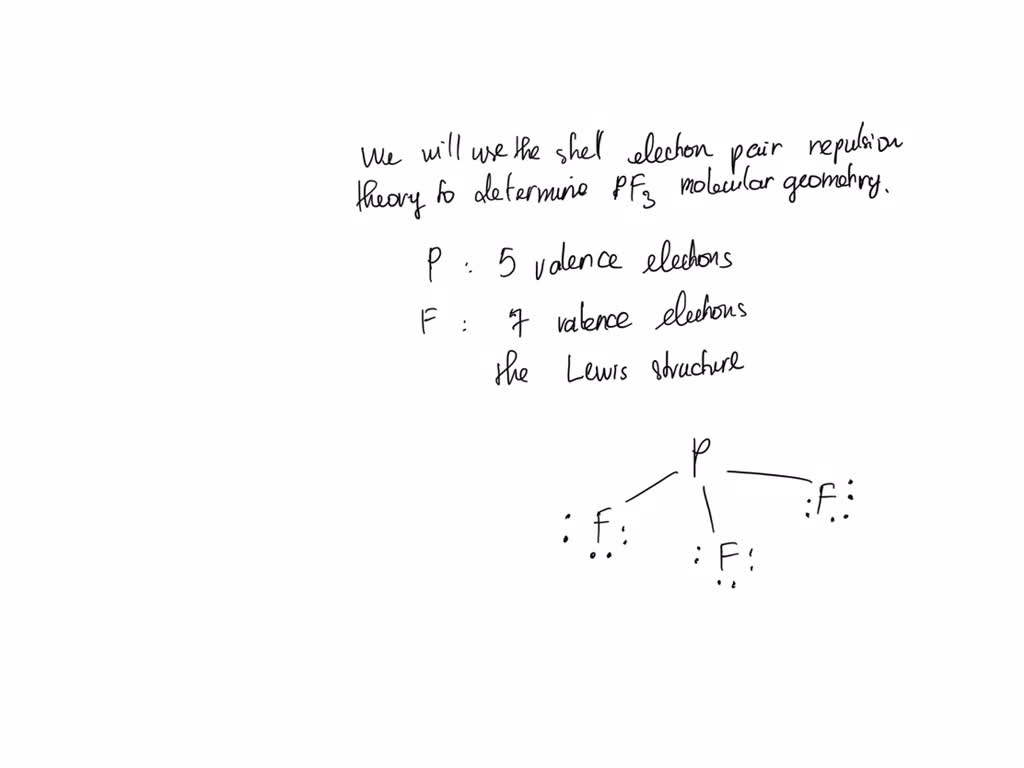 We will use the shell electron pair repulsion
theory to determine PF3 molecular geometry.
P : 5 valence electrons
F : 7 valence electrons
the Lewis structure
P
F F F